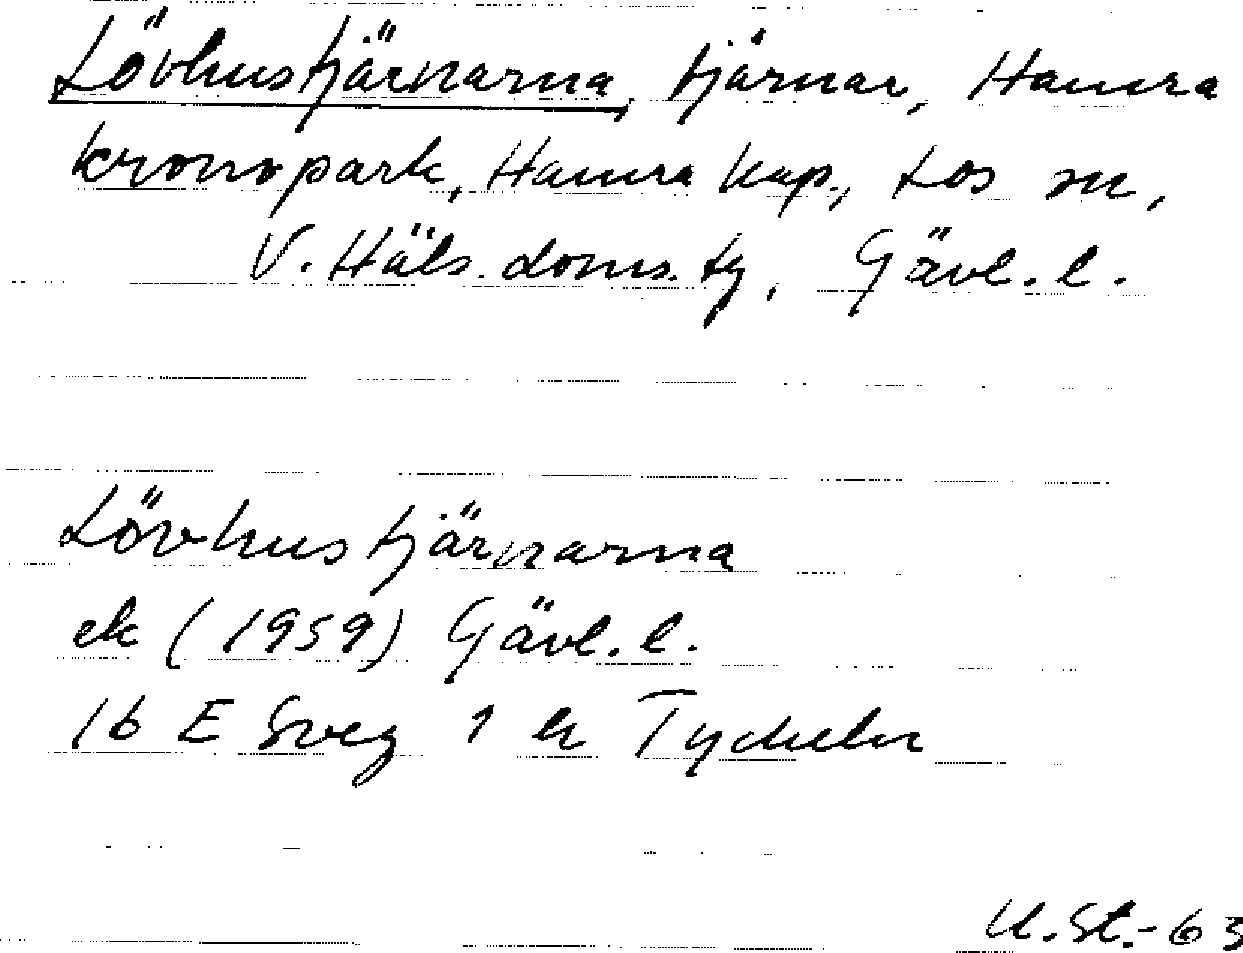 Lövhustjärnarna, tjärnar, Hamra
kronopark, Hamra kap., Los sn,
V. Häls. doms. tg, Gävl. l.
Lövhustjärnarna
ek (1959) Gävl. l.
16 E Sveg 1 h
U. St.-63